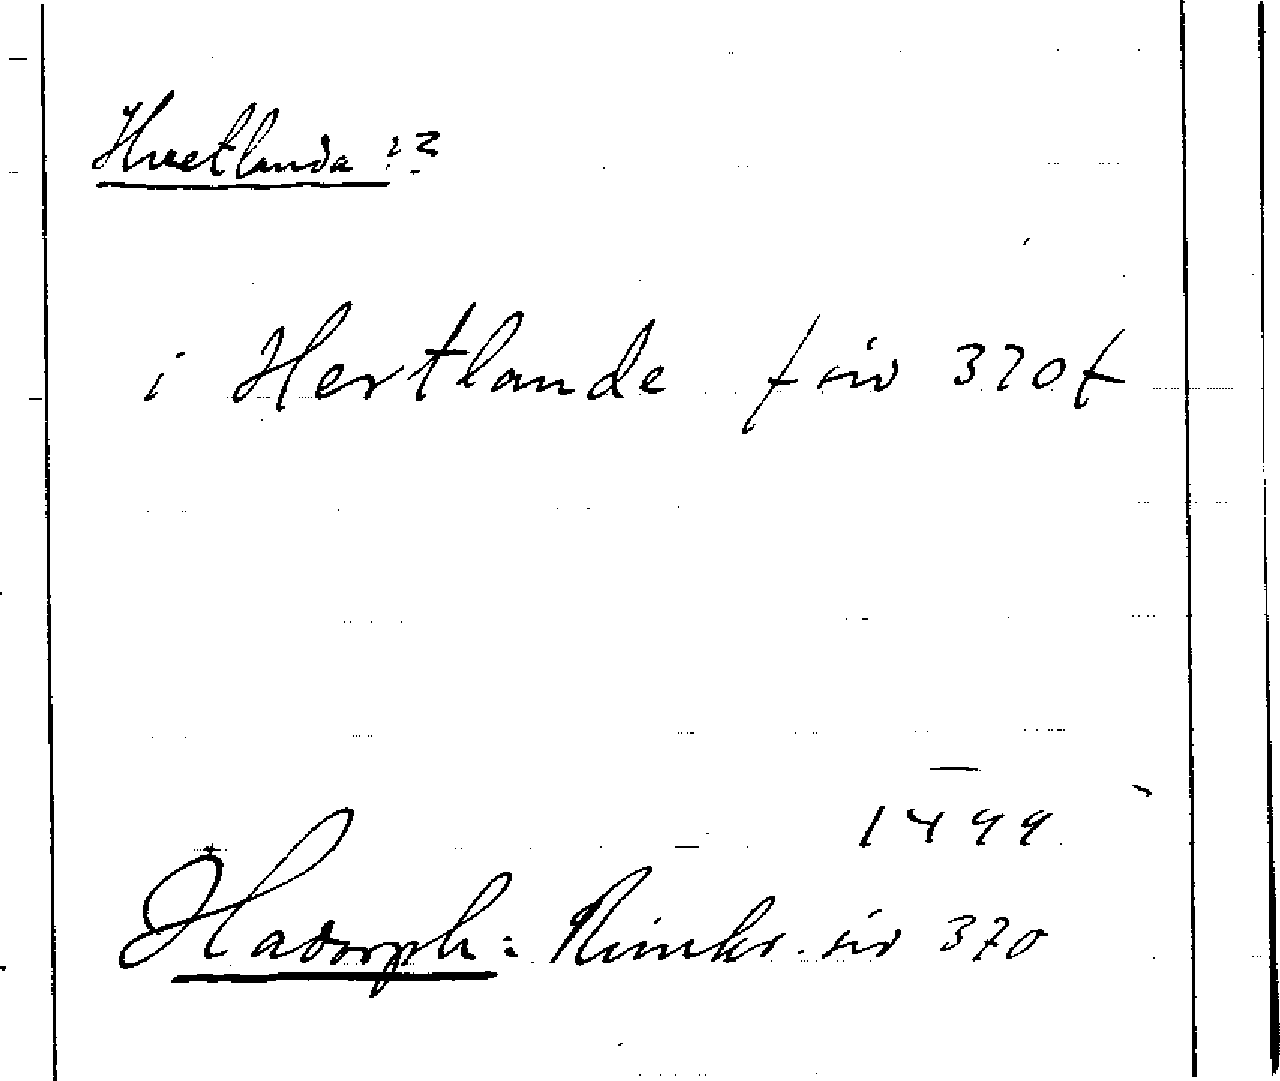 Hvetlanda ??
i Hertlande f siv 370 f
1499
Hadorph: Rimkr. siv 370